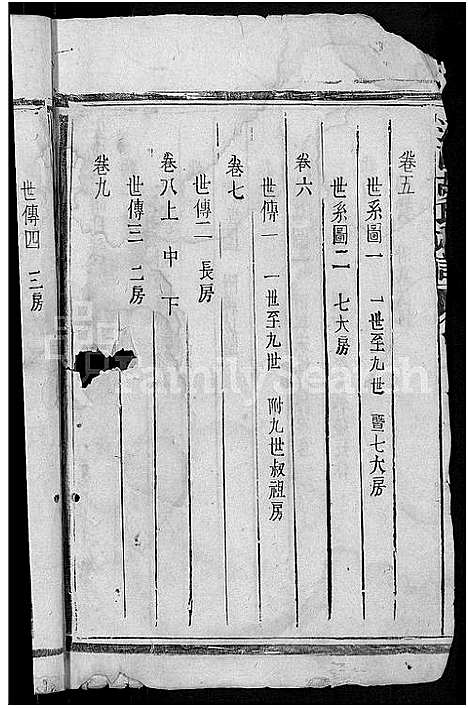 卷五
世系圖一 一世至九世 暨七大房
世系圖二 七大房
卷六
世傳一 一世至九世 附九世叔祖房
卷七
世傳二 長房
卷八上中下
世傳三 二房
卷九
世傳四 三房
FamilySearch